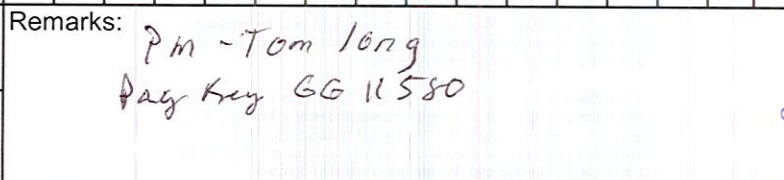 Remarks:
Pm - Tom long
Pay Key GG 11580